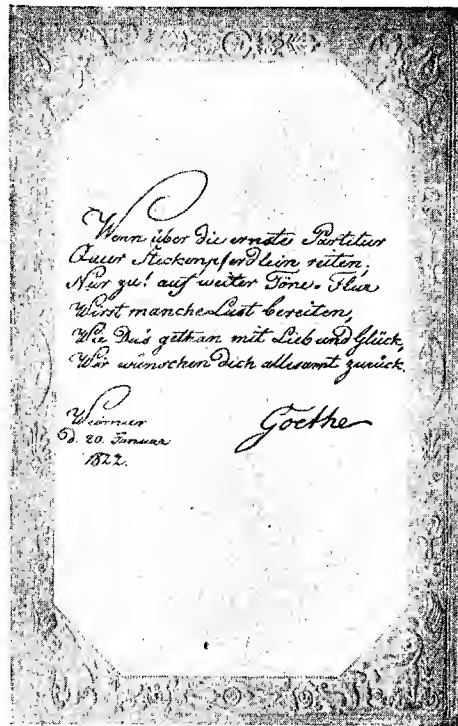 Wenn über die ernste Partitur
Quer Steckenpferdlein reiten;
Nur zu! auf weiter Töne-Flur
Wirst manche Lust bereiten,
Wie Du's gethan mit Lieb und Glück,
Wir wünschen Dich allesamt zurück.
Weimar
d. 20. Januar
1822.
Goethe